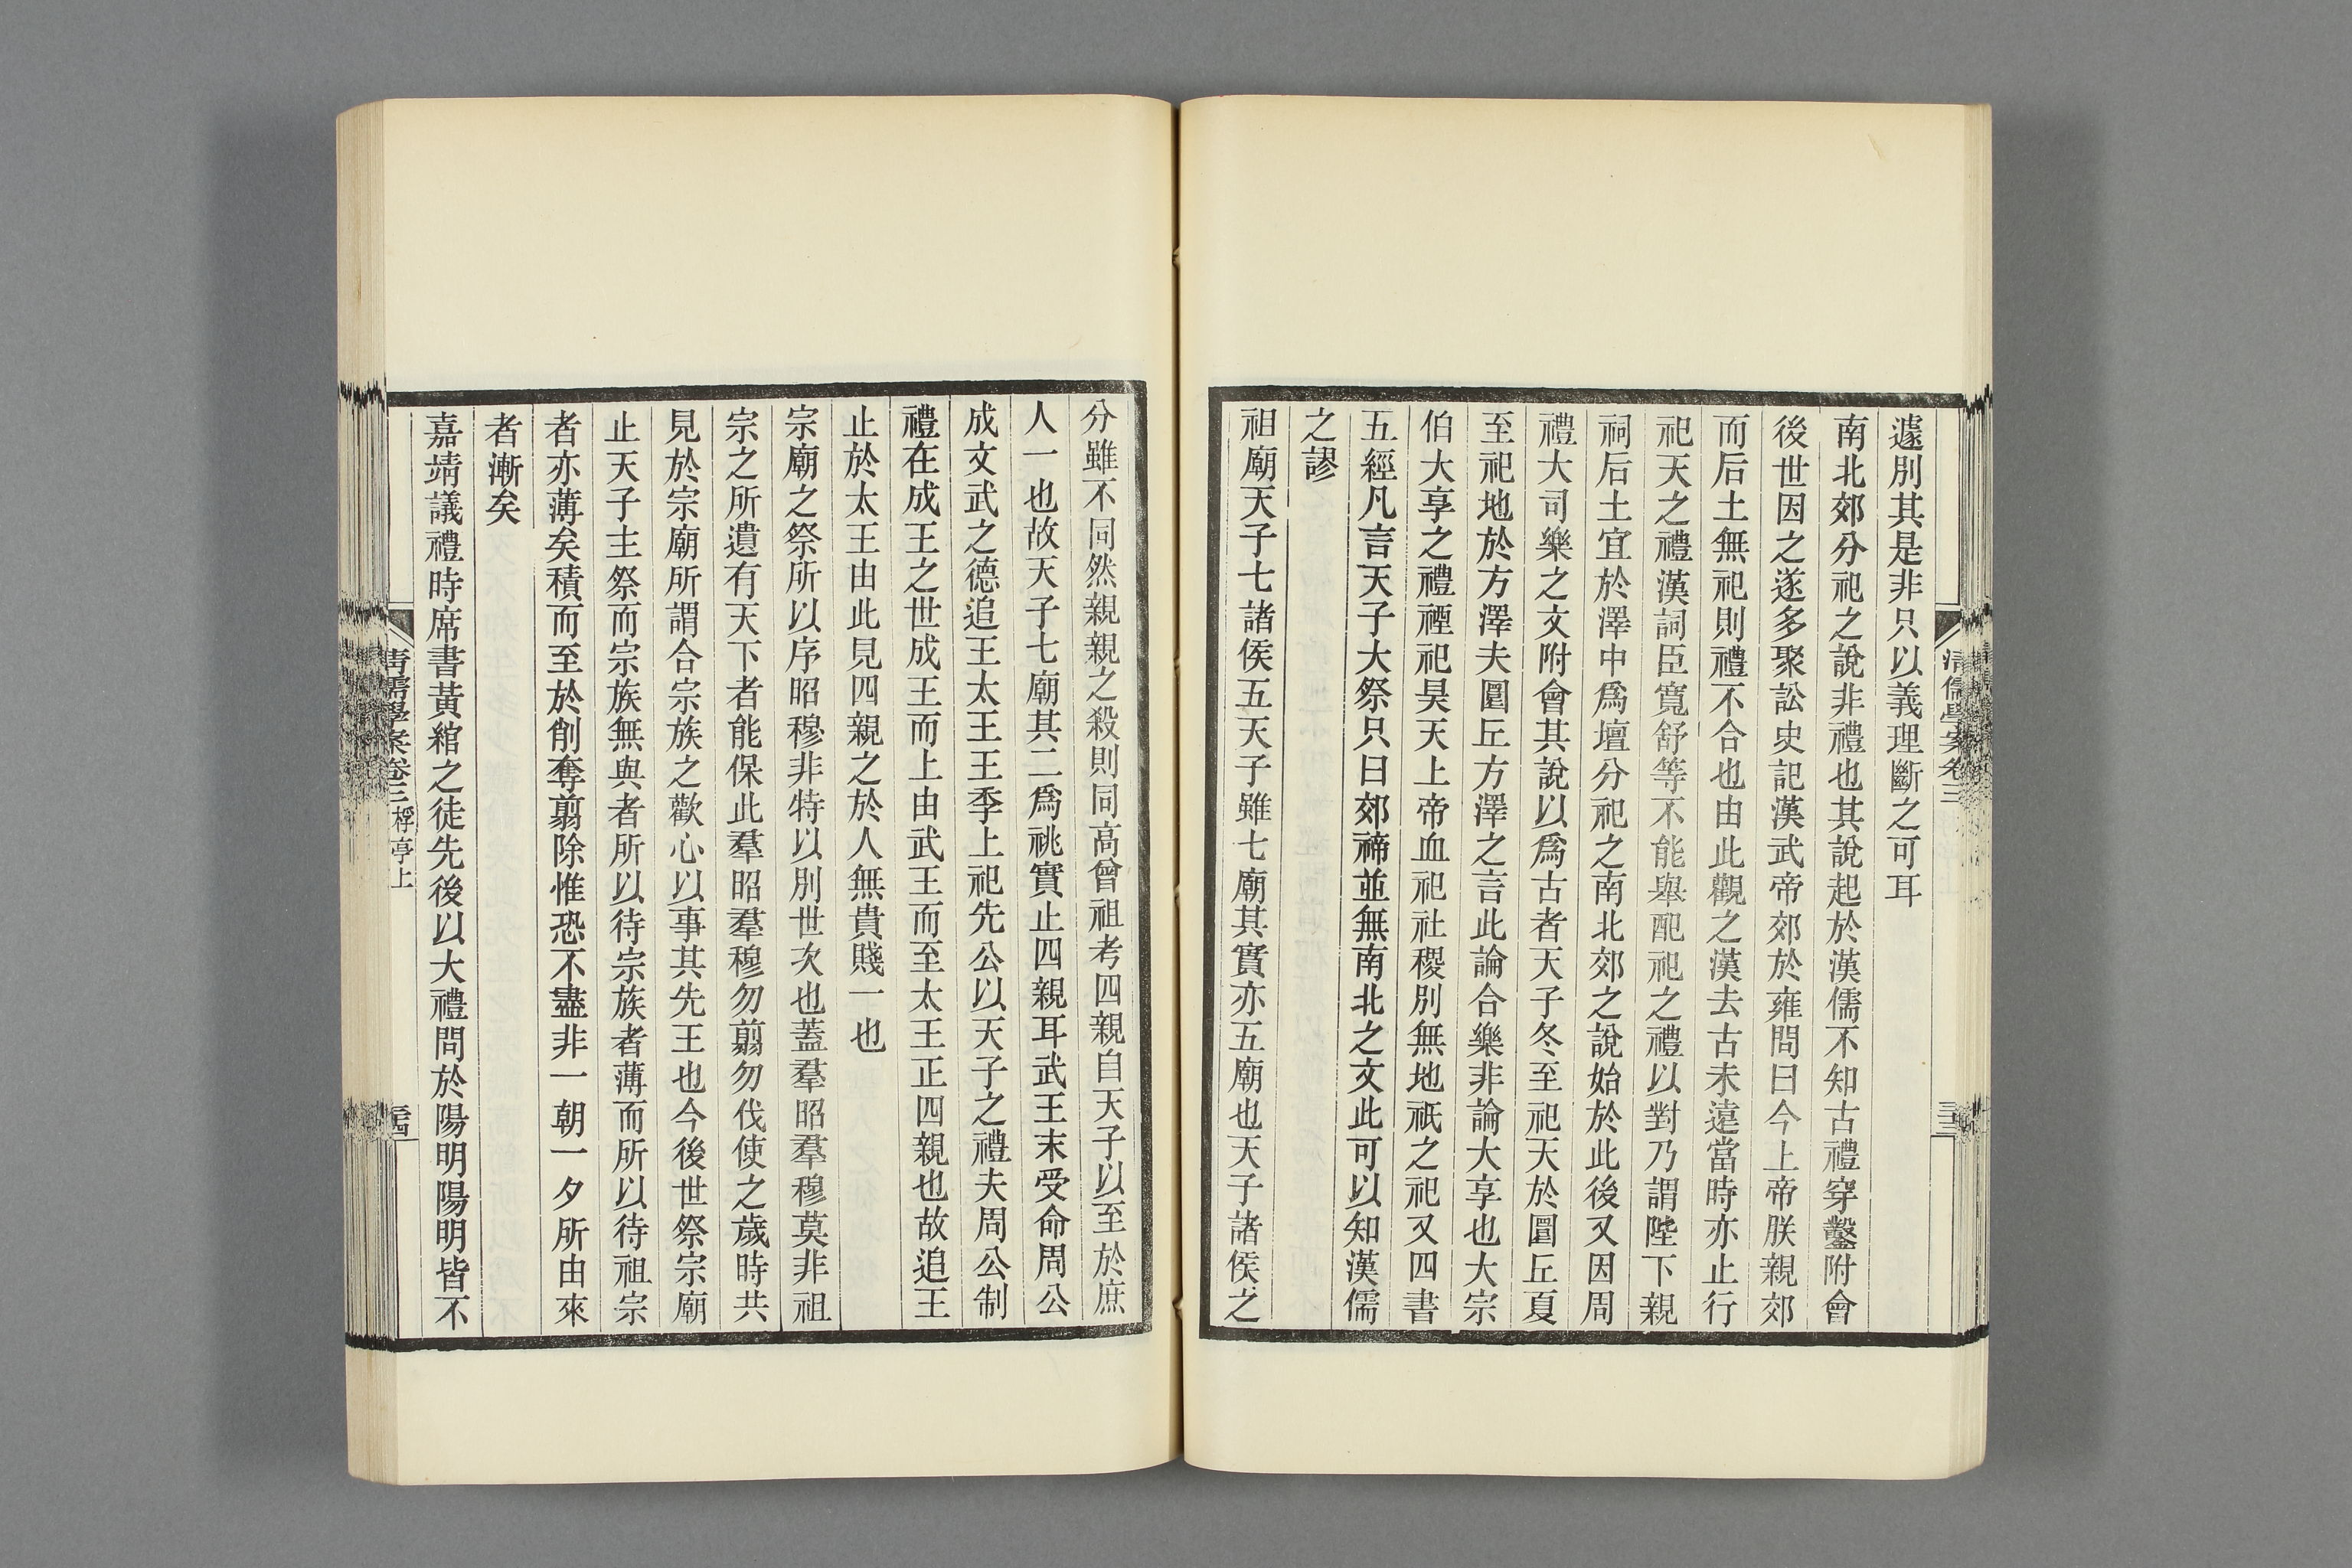 清儒學案卷三
遽別其是非只以義理斷之可耳
南北郊分祀之說非禮也其說起於漢儒不知古禮穿鑿附會
後世因之遂多聚訟史記漢武帝郊於雍問曰今上帝朕親郊
而后土無祀則禮不合也由此觀之漢去古未遠當時亦止行
祀天之禮漢詞臣寬舒等不能舉配祀之禮以對乃謂陛下親
祠后土宜於澤中爲壇分祀之南北郊之說始於此後又因周
禮大司樂之文附會其說以爲古者天子冬至祀天於圜丘夏
至祀地於方澤夫圜丘方澤之言此論合樂非論大享也大宗
伯大享之禮禋祀昊天上帝血祀社稷別無地祇之祀又四書
五經凡言天子大祭只曰郊禘並無南北之文此可以知漢儒
之謬
祖廟天子七諸侯五天子雖七廟其實亦五廟也天子諸侯之
分雖不同然親親之殺則同高曾祖考四親自天子以至於庶
人一也故天子七廟其二爲祧實止四親耳武王末受命周公
成文武之德追王太王王季上祀先公以天子之禮夫周公制
禮在成王之世成王而上由武王而至太王正四親也故追王
止於太王由此見四親之於人無貴賤一也
宗廟之祭所以序昭穆非特以別世次也蓋羣昭羣穆莫非祖
宗之所遺有天下者能保此羣昭羣穆勿翦勿伐使之歲時共
見於宗廟所謂合宗族之歡心以事其先王也今後世祭宗廟
止天子主祭而宗族無與者所以待宗族者薄而所以待祖宗
者亦薄矣積而至於削奪翦除惟恐不盡非一朝一夕所由來
者漸矣
嘉靖議禮時席書黃綰之徒先後以大禮問於陽明陽明皆不
清儒學案卷三 桴亭上